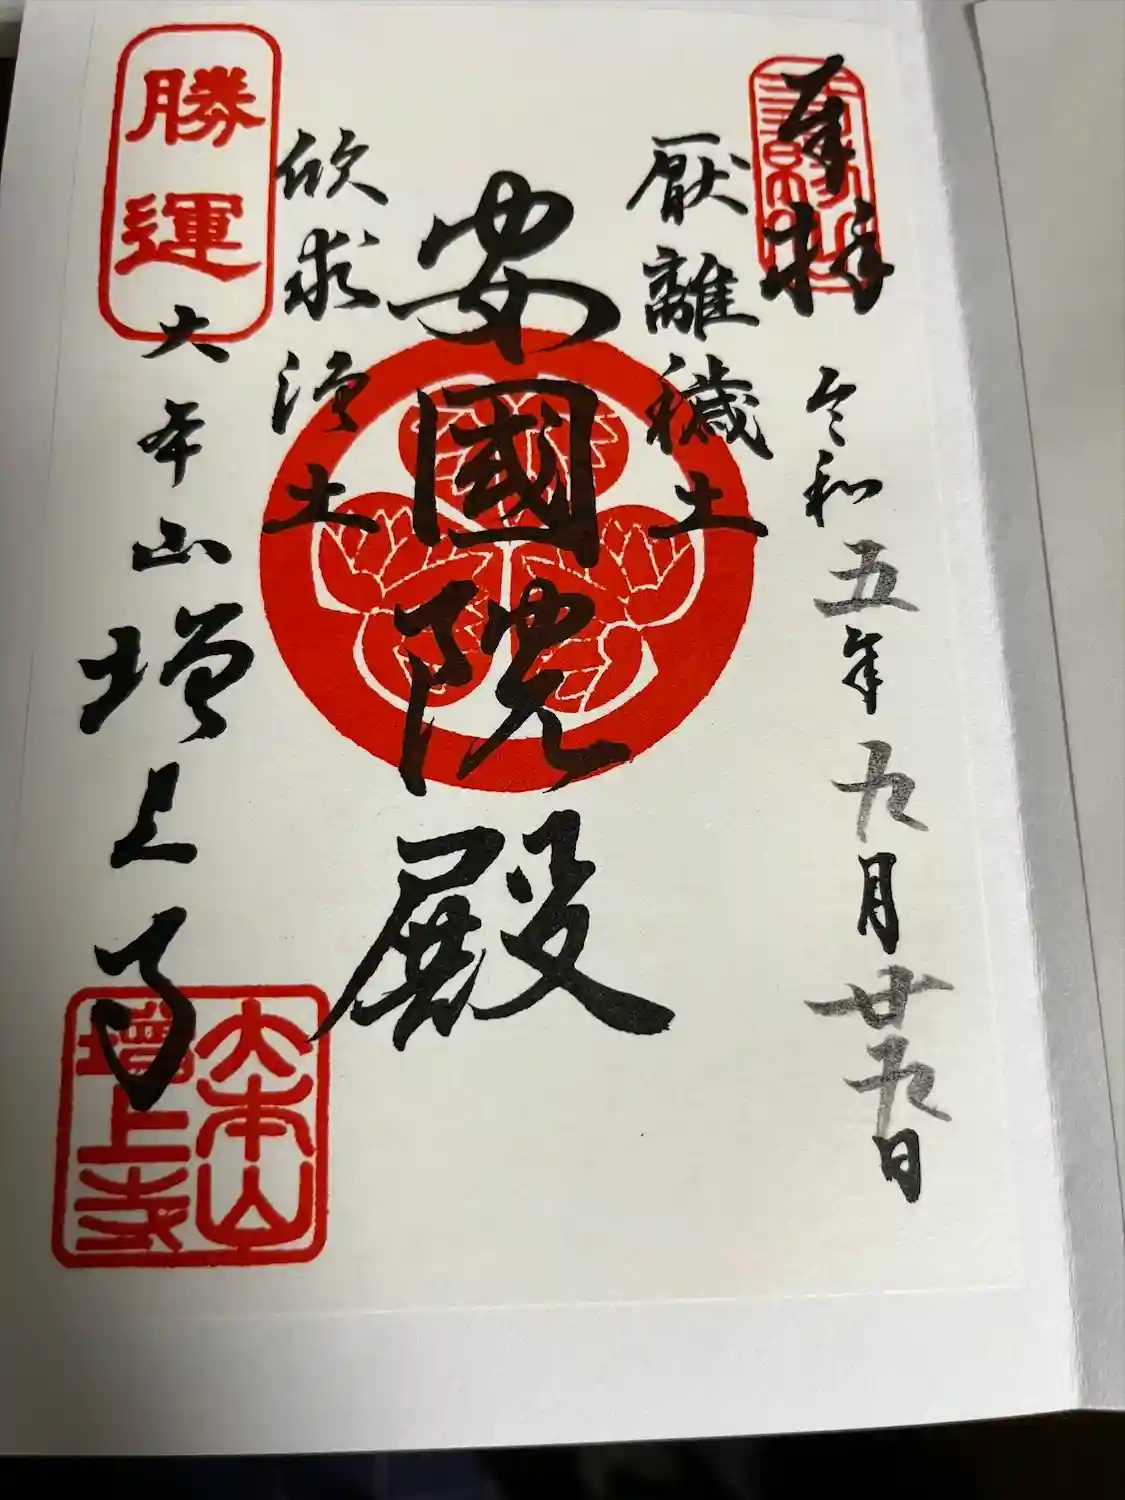 奉拝
令和五年九月廿九日
厭離穢土
安國院殿
欣求浄土
勝運
大本山増上寺
大本山
増上寺